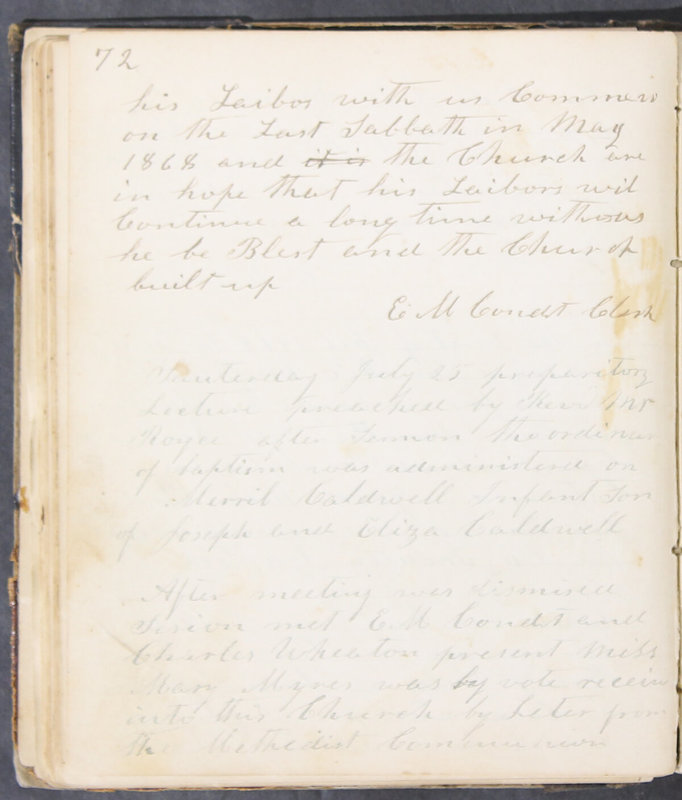 72
his Laibos with us Commenc
on the Last Sabbath in May
1868 and it is the Church are
in hope that his Laibors wil
Continue a long time with us
he be Blest and the Church
built up
E M Condit Clerk
Sauterday July 25 preparitory
Lecture preached by Rev Mr
Royce after Sermon the ordinan
of baptism was administerd on
Merril Caldwell Infant Son
of Joseph and Eliza Caldwell
After meeting was dismised
Sesion met E M Condit and
Charles Wheaton present Miss
Mary Myres was by vote receiv
into this Church by Leter from
the Methodist Communion